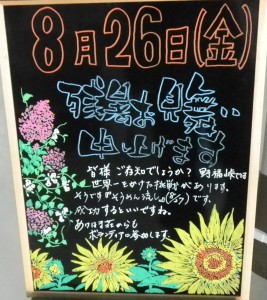 8月26日(金)
残暑お見舞い
申し上げます
皆様ご存知でしょうか？野福峠では
世界一をかけた挑戦があります。
そうです『そうめん流し』(8/27)です。
成功するといいですね。
ボランティアの参加します。